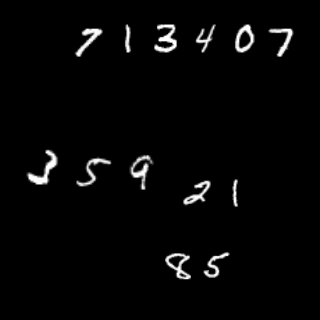 7 1 3 4 0 7
3 5 9 2 1
8 5